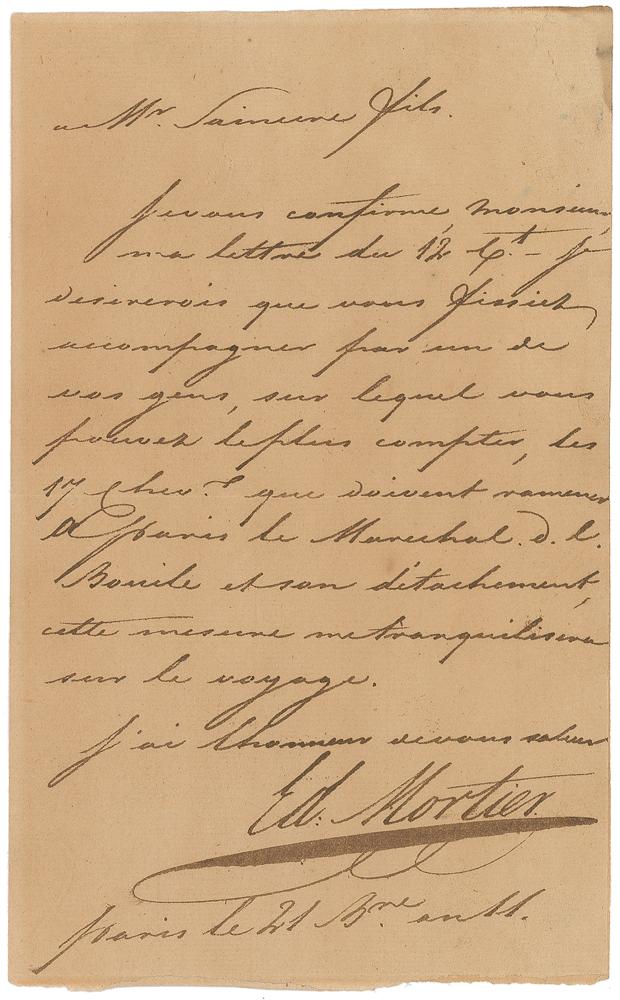 a Mr. Saineere fils.
Jevous confirme, monsieur,
ma lettre du 12 Ct - Je
desirerois que vous fissiez
accompagner par un de
vos gens, sur lequel vous
pouvez leplus compter, les
17 chev.s que doivent ramener
a paris le Marechal. d. l.
Bouile et son détachement,
cette mesure metranquilisera
sur le voyage.
J'ai lhonneur devous saluer
Ed. Mortier
paris le 21 Bre an 11.